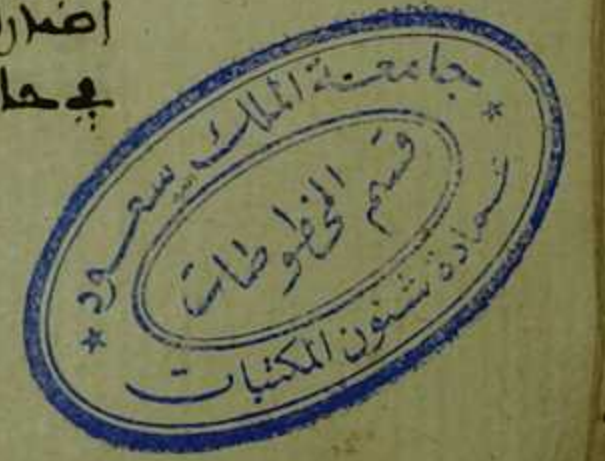 في حا
جامعة الملك سعود
قسم المخطوطات
عمادة شئون المكتبات